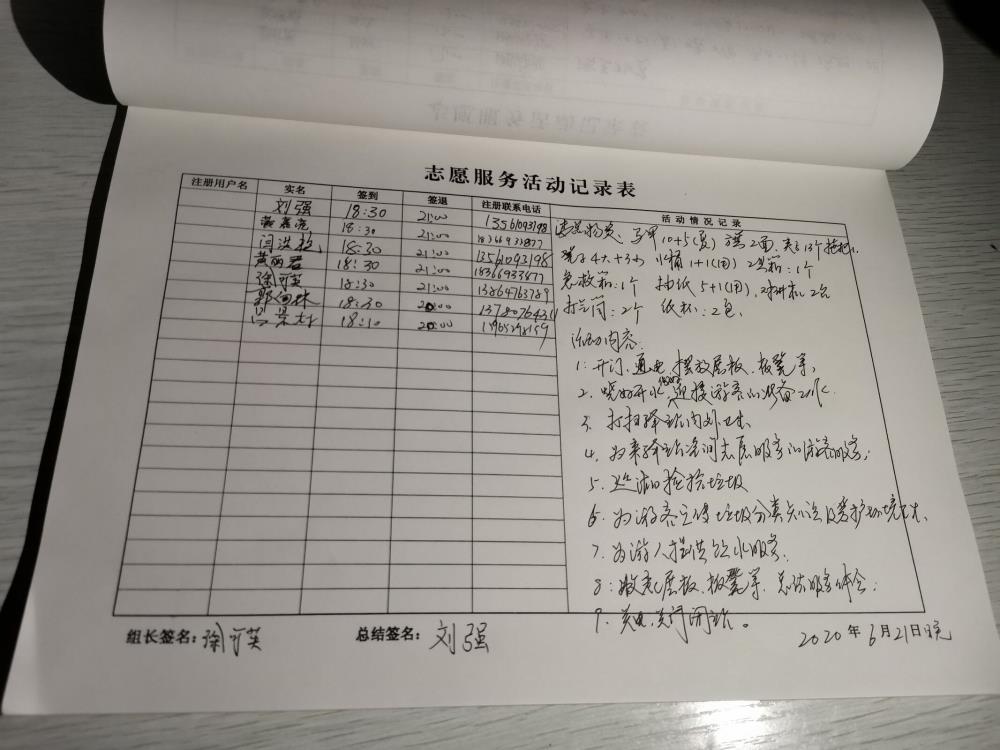 志愿服务活动记录表
注册用户名 实名 签到 签退 注册联系电话 活动情况记录
刘强 18:30 21:00 13561093198
18:30 21:00 18366933877
闫洪 18:30 21:00 13561093198
黄丽君 18:30 21:00 18366933877
徐可英 18:30 21:00 13864763789
郭向林 18:30 20:00 1378076431
18:10 20:00 15965298159
马甲10+5(夏) 2面
4大+3小 水桶1+1(用) 工具箱:1个
急救箱:1个 抽纸5+1(用), 对讲机2台
打气筒:2个 纸杯:2包
活动内容:
1. 开门、通电、摆放展板、板凳等,
2. 烧好开水, 迎接游客 准备
3. 打扫驿站内外卫生,
4. 为来驿站咨询志愿服务的游客服务;
5. 巡湖捡拾垃圾
6. 为游客宣传垃圾分类知识及爱护环境卫生,
7. 为游人提供饮水服务,
8. 收起展板、板凳等, 总结服务体会;
9. 关电、关门闭站。
组长签名: 徐可英 总结签名: 刘强 2020年6月21日晚